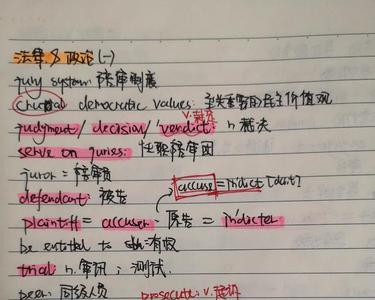 法律 & 政治 (一)
jury system 陪审制度
crucial democratic values: 至关重要的民主价值观
v. 裁决
judgment / decision / verdict: n 裁决
serve on juries: 任职陪审团
juror = 陪审员
defendant: 被告
accuse = indict
plaintiff = accuser 原告 = indicter
be entitled to sth: 有权
trial: n. 审讯; 测试.
peer: 同等人员
prosecute: v. 起诉